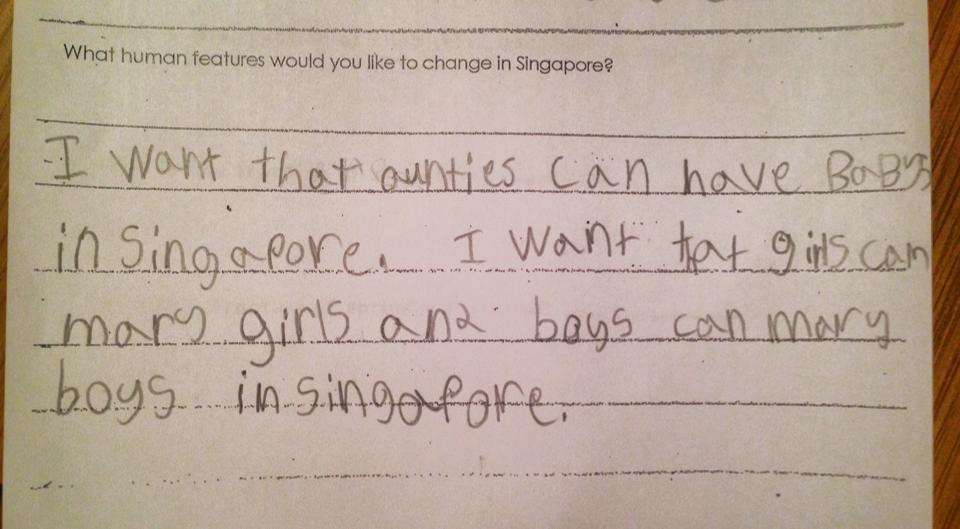 What human features would you like to change in Singapore?
I want that aunties can have BaBys
in Singapore. I want tat girls can
mary girls and boys can mary
boys in singapore.